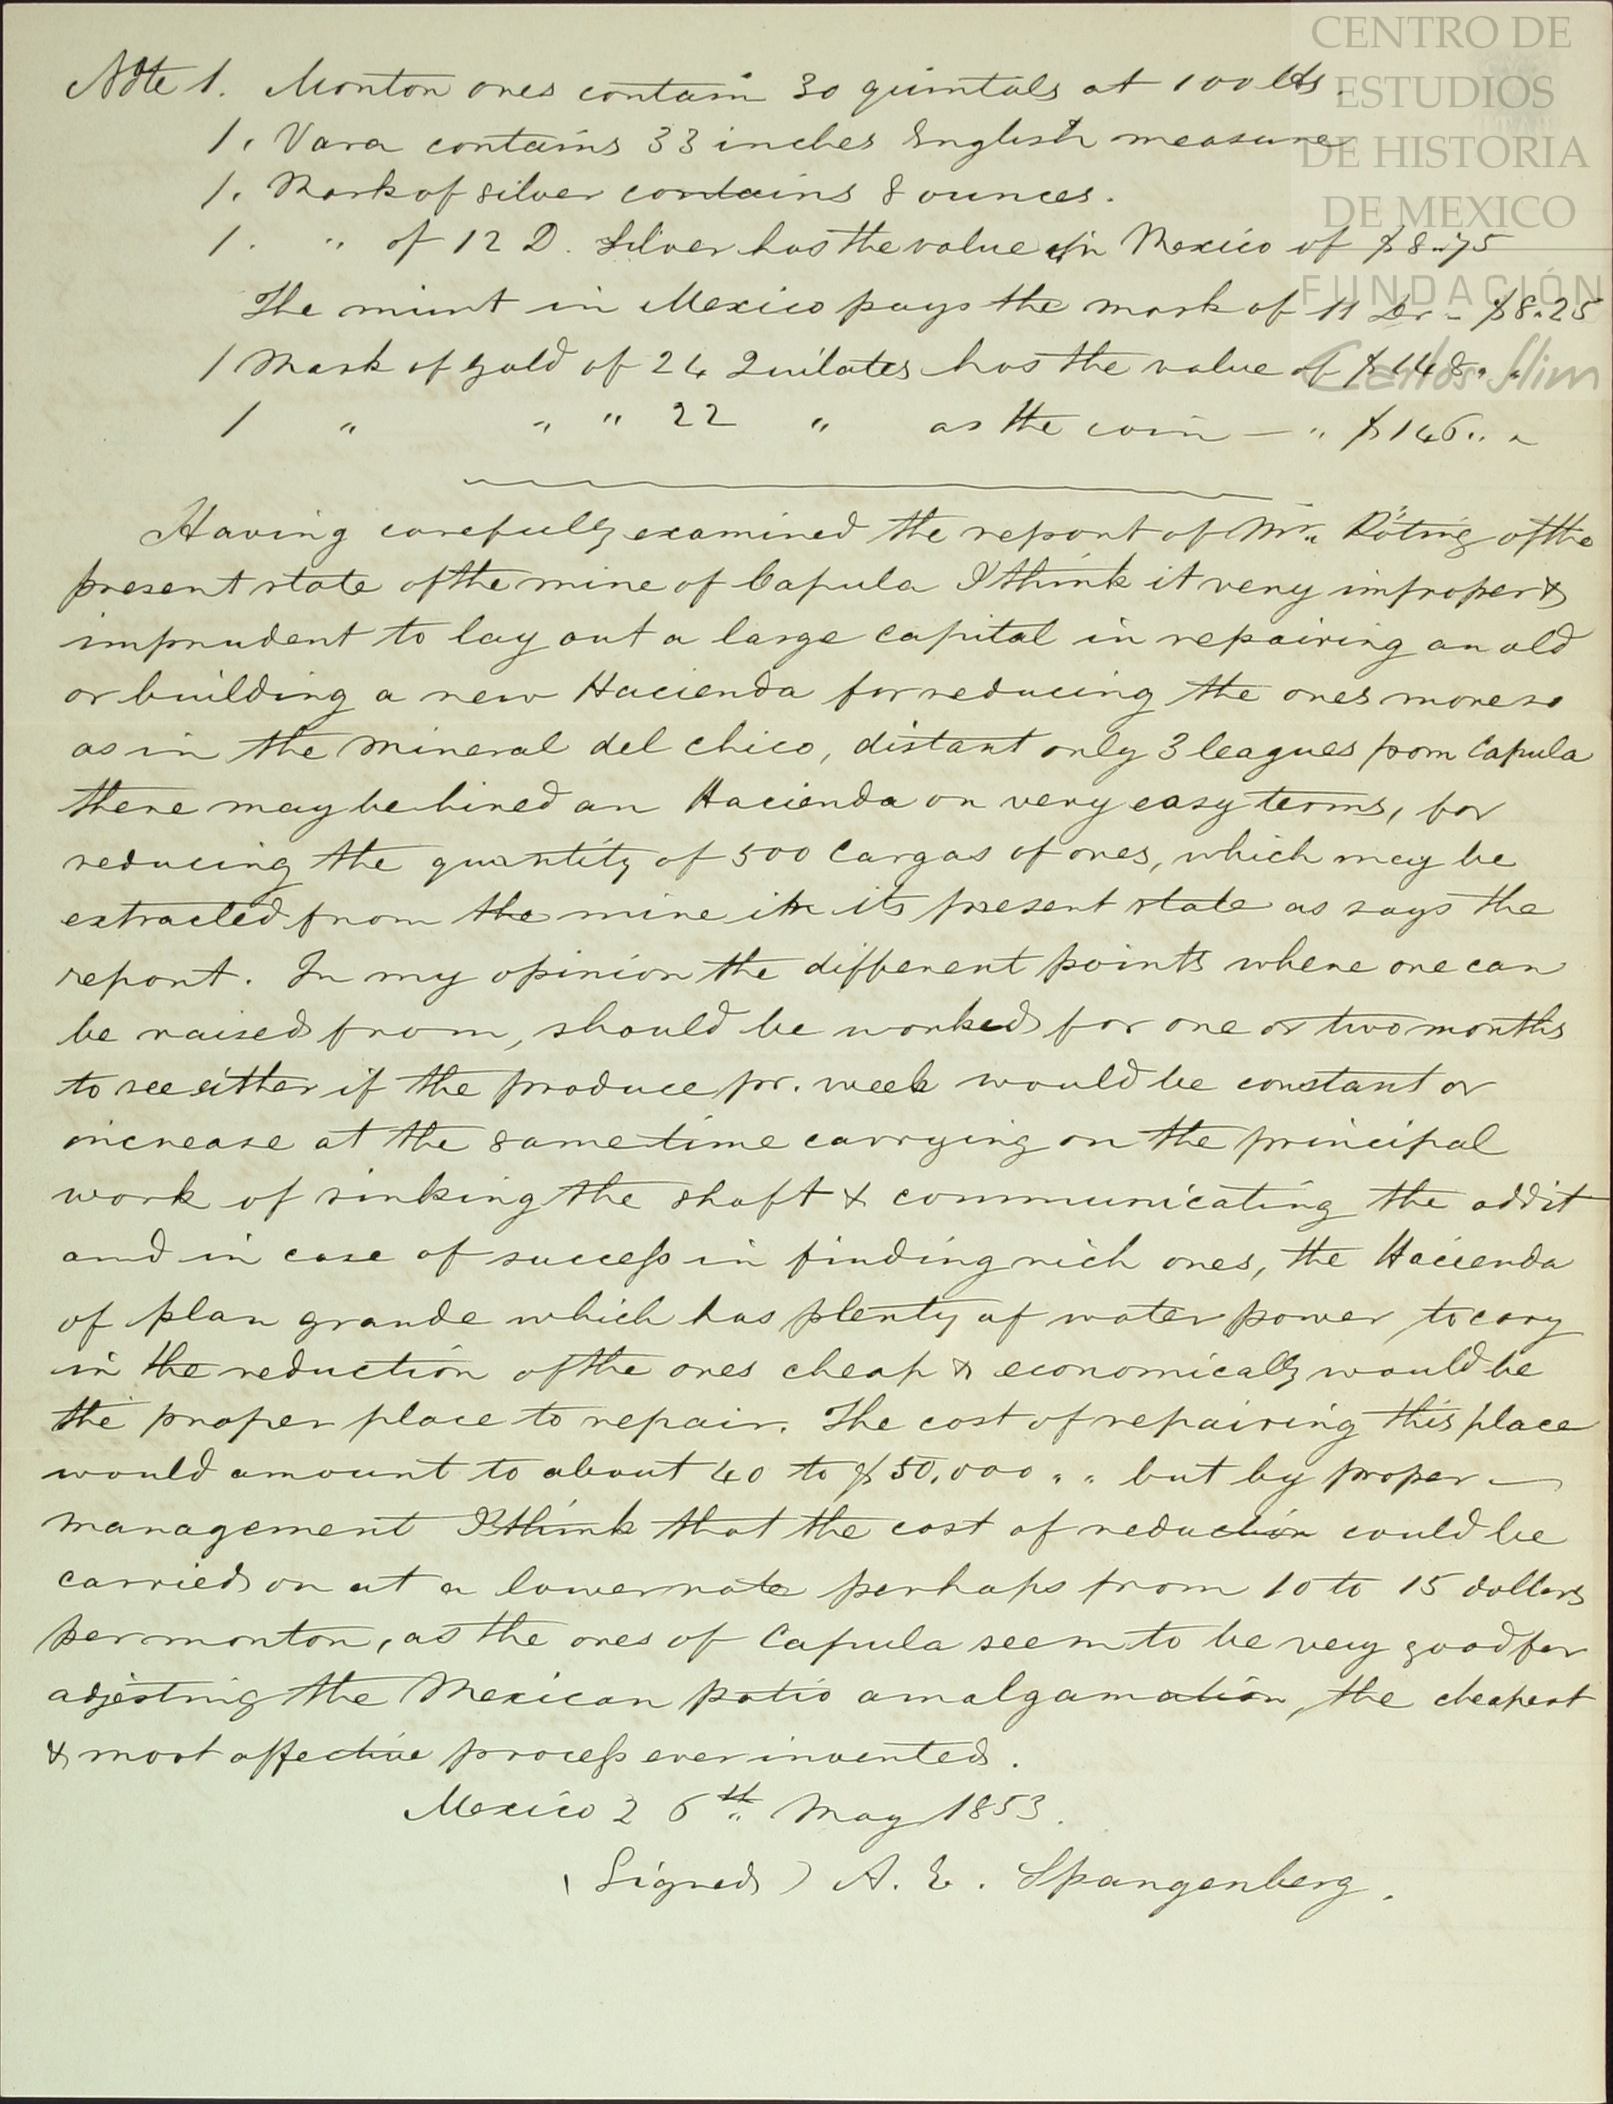 CENTRO DE
ESTUDIOS
DE HISTORIA
DE MEXICO
FUNDACIÓN
Carlos Slim
Note 1. Monton ores contain 30 quintals at 100 lbs.
1. Vara contains 33 inches English measure
1. Mark of silver contains 8 ounces.
1. " of 12 D. Silver has the value in Mexico of $8.75
The mint in Mexico pays the mark of 11 Dr - $8.25
1 Mark of gold of 24 Quilates has the value of $148 " "
1 " " " 22 " as the coin — " $146 " "
Having carefully examined the report of Mr. Röting of the
present state of the mine of Capula I think it very improper &
imprudent to lay out a large capital in repairing an old
or building a new Hacienda for reducing the ores more so
as in the Mineral del chico, distant only 3 leagues from Capula
there may be hired an Hacienda on very easy terms, for
reducing the quantity of 500 Cargas of ores, which may be
extracted from the mine in its present state as says the
report. In my opinion the different points where ore can
be raised from, should be worked for one or two months
to see either if the produce pr. week would be constant or
increase at the same time carrying on the principal
work of sinking the shaft & communicating the addit
and in case of success in finding rich ores, the Hacienda
of plan grande which has plenty of water power to cary
in the reduction of the ores cheap & economically would be
the proper place to repair. The cost of repairing this place
would amount to about 40 to $50,000 " " but by proper —
management I think that the cost of reduction could be
carried on at a lower rate perhaps from 10 to 15 dollars
per monton, as the ores of Capula seem to be very good for
adjesting the Mexican patio amalgamation, the cheapest
& most affective process ever invented.
Mexico 26th May 1853.
(Signed) A. E. Spangenberg.